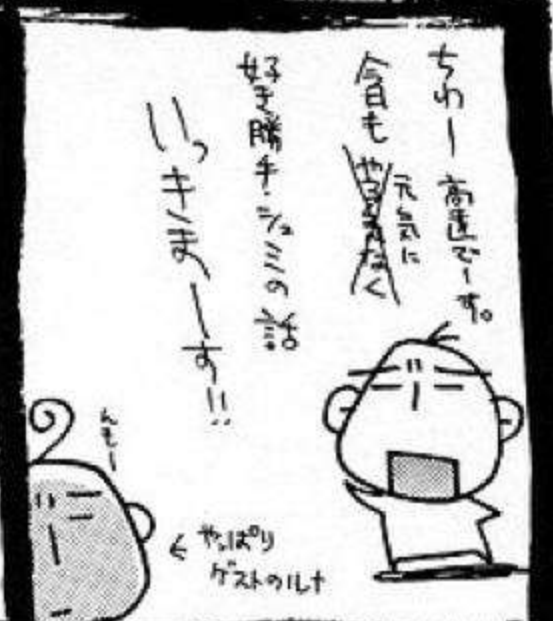 ちわー 高遠でーす。
今日も
元気に
好き勝手・シュミの話
いっきまーす!!
んもー
やっぱり
ゲストのルナ